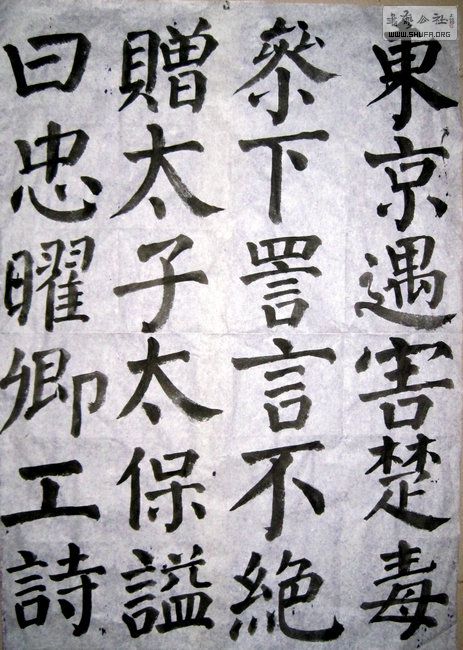 東京遇害楚毒
叅下詈言不絕
贈太子太保謚
曰忠曜卿工詩
書藝公社
WWW.SHUFA.ORG